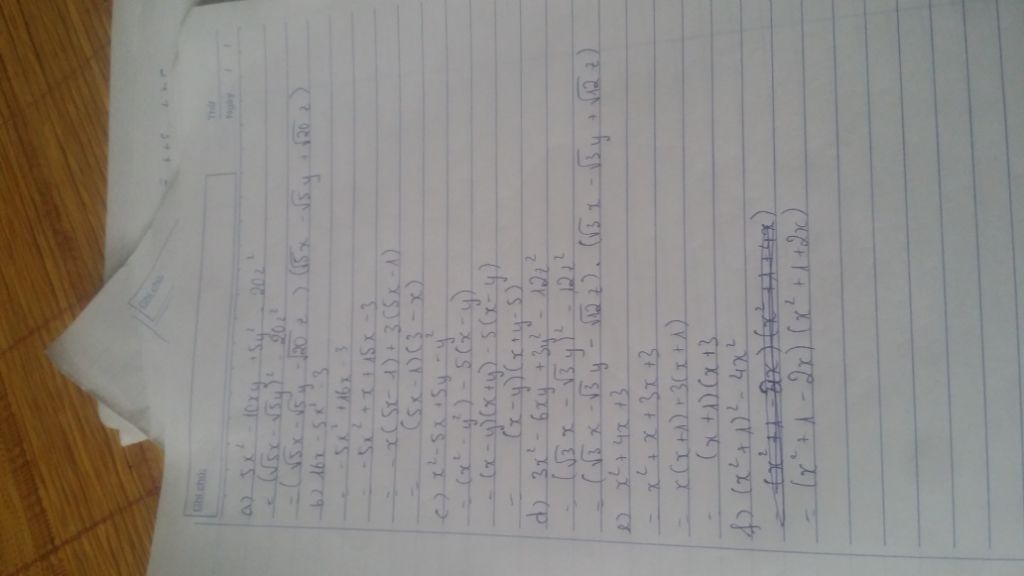 Ghi chú
Thứ
Ngày / /
Ghi chú
a) 5x² - 10xy + 5y² - 20z²
= (√5x - √5y)² - 20z²
= (√5x - √5y - √20 z) (√5x - √5y + √20 z)
b) 16x - 5x² - 3
= -5x² + 16x - 3
= -5x² + x + 15x - 3
= -x(5x - 1) + 3(5x - 1)
= (5x - 1)(3 - x)
c) x² - 5x + 5y - y²
= (x² - y²) - 5(x - y)
= (x - y)(x + y) - 5(x - y)
= (x - y)(x + y - 5)
d) 3x² - 6xy + 3y² - 12z²
= (√3x - √3y)² - 12z²
= (√3x - √3y - √12 z). (√3x - √3y + √12 z)
e) x² + 4x + 3
= x² + x + 3x + 3
= x(x + 1) + 3(x + 1)
= (x + 1)(x + 3
f) (x² + 1)² - 4x²
= (x² + 1 - 2x) (x² + 1 + 2x)